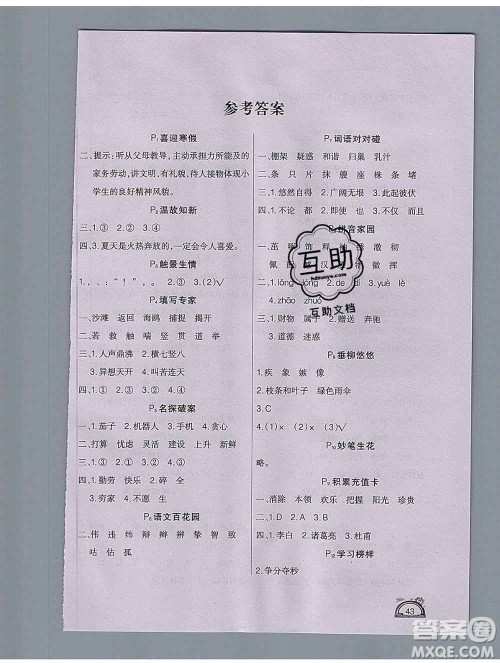 参考答案
P₁喜迎寒假
二、提示：听从父母教导，主动承担力所能及的
家务劳动，讲文明，有礼貌，待人接物体现小
学生的良好精神风貌。
P₂温故知新
三、1.③ 2.② 3.④ 4.①
四、3.夏天是火热奔放的，一定会令人喜爱。
P₃触景生情
1. 2.③ 3.(2)√
P₄填写专家
一、沙滩 返回 海鸥 捕捉 拍摄 唱歌
二、著 救 触 喘 竖 贯 道 举
三、1.人声鼎沸 2.横七竖八
3.异想天开 4.叫苦连天
四、1.② 2.① 3.③ 4.②
P₅名探破案
一、1.茄子 2.机器人 3.手机 4.贪心
二、打算 忧虑 灵活 建设 上升 新鲜
三、1.③ 2.① 3.② 4.④
四、1.勤劳 快乐 2.碎 全
3.穷家 4.不愿 生
P₆语文百花园
二、伟 违 纬 辩 辫 辨 挚 智 致
咕 估 孤
P₇词语对对碰
一、棚架 疑惑 和谐 归巢 乳汁
二、条 只 片 抹 艘 座 株 条 堵
三、1.悠然自得 2.广阔无垠 3.此起彼伏
四、1.不论 都 2.即使 也 3.不仅 而且
P₈拼音家园
饰 鲜 激 彻
佩 汉 徽 挥
dòng 3.yuè lè
4.zhāo zhuó
三、1.财物 属于 2.赠送 奔驰
3.道德 迷惑
P₉垂柳悠悠
1.疾 象 嫉 像
2.枝条和叶子 绿色雨伞
3.C
4.(1)× (2)× (3)√
P₁₀妙笔生花
略。
P₁₁积累充值卡
一、消除 本领 欢喜 忽然 阳光 珍贵
三、1.D 2.B 3.A 4.C
四、1.李白 2.诸葛亮 3.杜甫
P₁₂学习榜样
2.争分夺秒
43
互助
hdzuowye.com
互助文档
答案圈
MXQE.COM